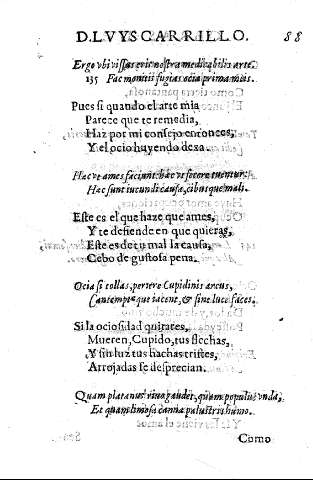 D. LVYS CARRILLO. 88
Ergo vbi vissas eris nostra medicabilis arte.
135 Fac monitis fugias ocia prima meis.
Pues si quando el arte mia
Parece que te remedia,
Haz por mi consejo entonces,
Y el ocio huyendo dexa.
Hæc vt ames faciunt: hæc vt fecere tuentur:
Hæc sunt iucundi causa, cibusque mali.
Este es el que haze que ames,
Y te defiende en que quieras,
Este es de tu mal la causa,
Cebo de gustosa pena.
Ocia si tollas, periere Cupidinis arcus,
Contemptæque iacent, & sine luce faces.
Si la ociosidad quitares,
Mueren, Cupido, tus flechas,
Y sin luz tus hachas tristes,
Arrojadas se desprecian.
Quam platanus riuo gaudet, quam populus vnda,
Et quam limosa canna palustris humo.
Como